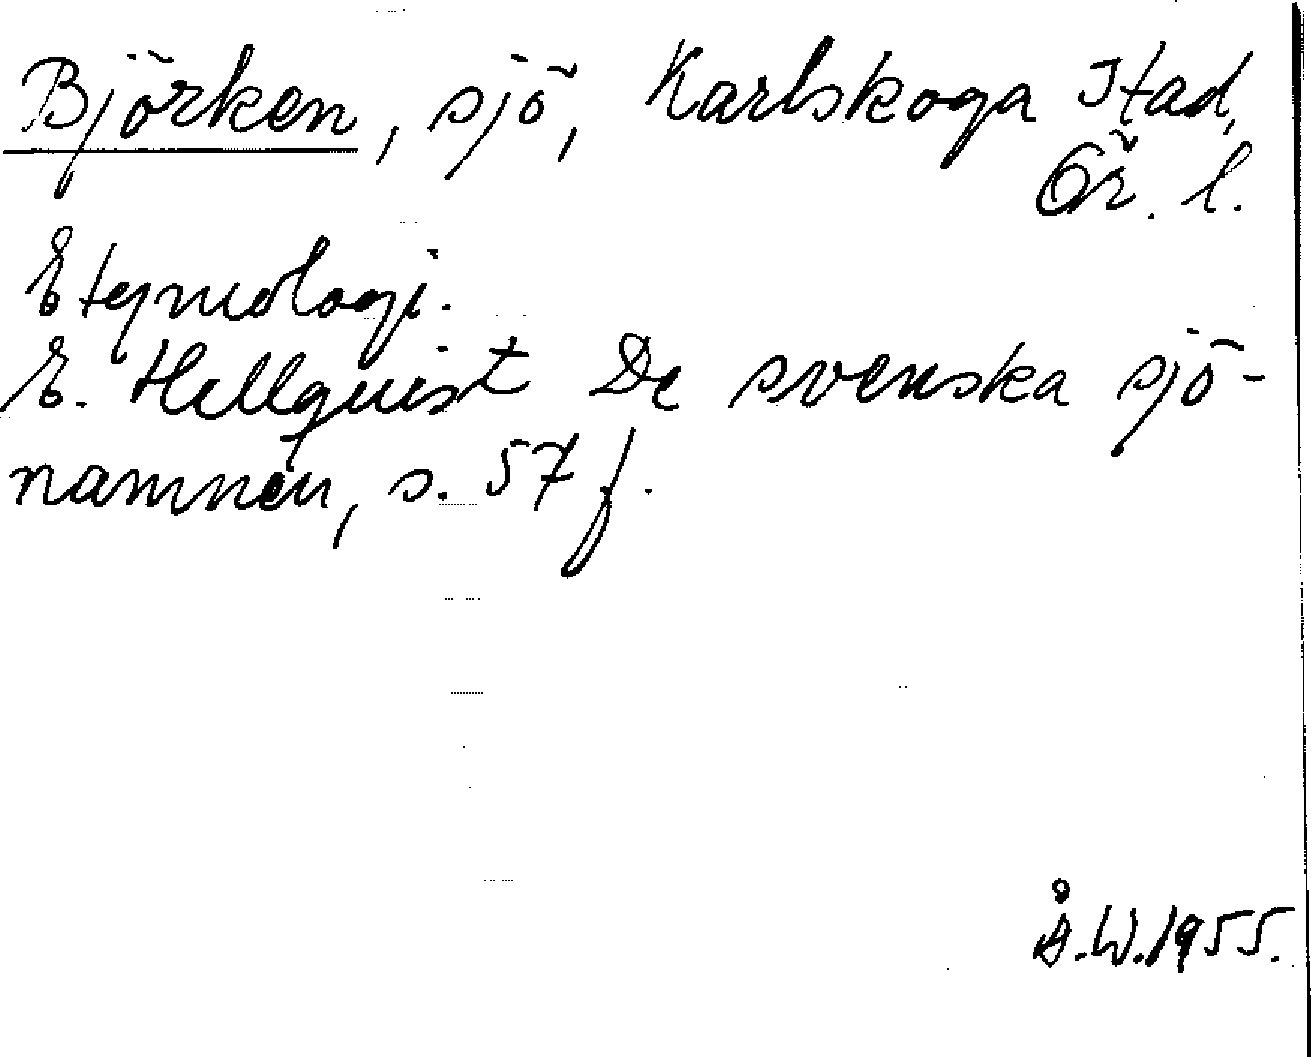 Björken, sjö, Karlskoga Stad,
Ör. l.
Etymologi.
E. Hellquist De svenska sjö-
namnen, s. 57 f.
Å.W.1955.